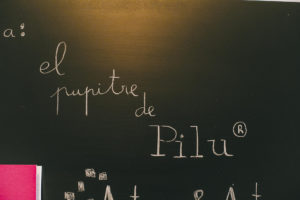 a:
el
pupitre
de
Pilu®